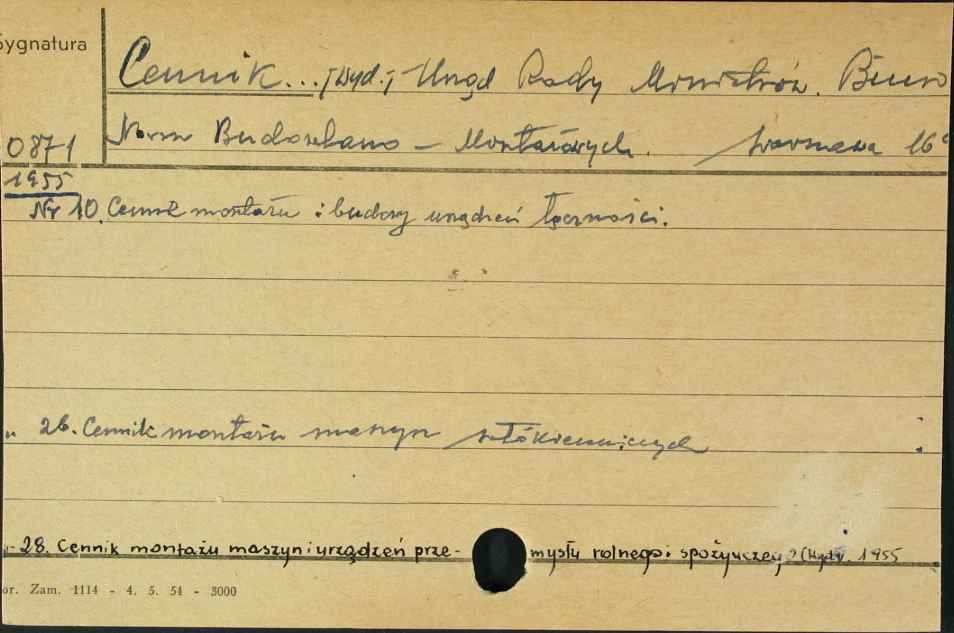 Sygnatura
Cennik... [wyd.:] Urząd Rady Ministrów. Biuro
Norm Budowlano - Montażowych. Warszawa 16°
0871
1955
Nr 10. Cennik montażu i budowy urządzeń łączności.
" 26. Cennik montażu maszyn włókienniczych
"- 28. Cennik montażu maszyn i urządzeń prze- mysłu rolnego i spożywczego 1955
or. Zam. 1114 - 4. 5. 54 - 3000